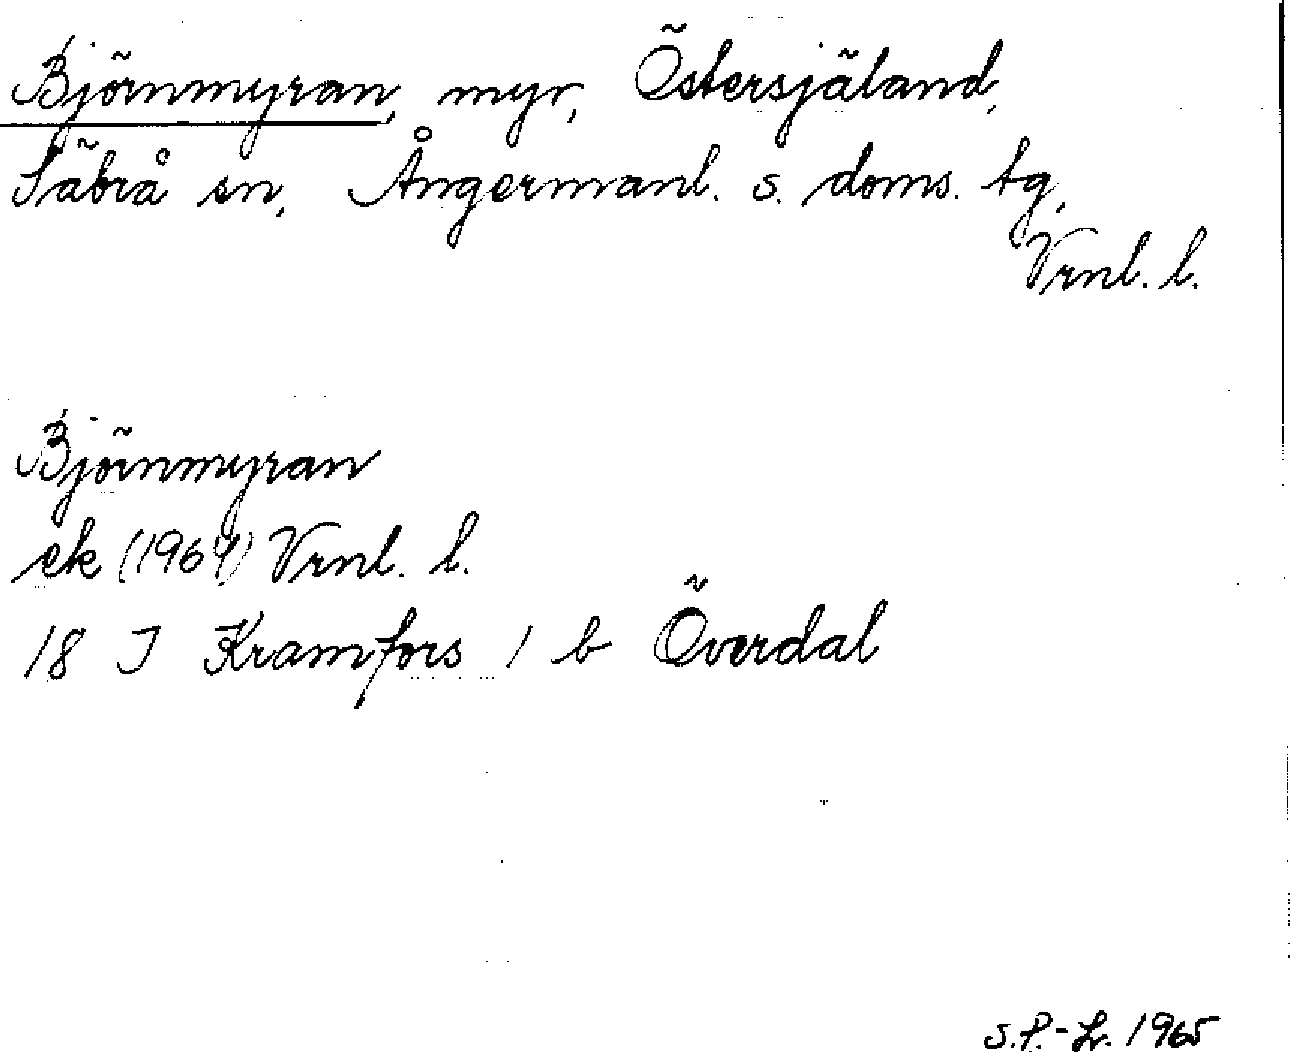 Björnmyran, myr, Östersjäland,
Säbrå sn, Ångermanl. s. doms. tg,
Vrnl. l.
Björnmyran
ek (1964) Vrnl. l.
18 I Kramfors 1 b Överdal
S.P.-Lr. 1965